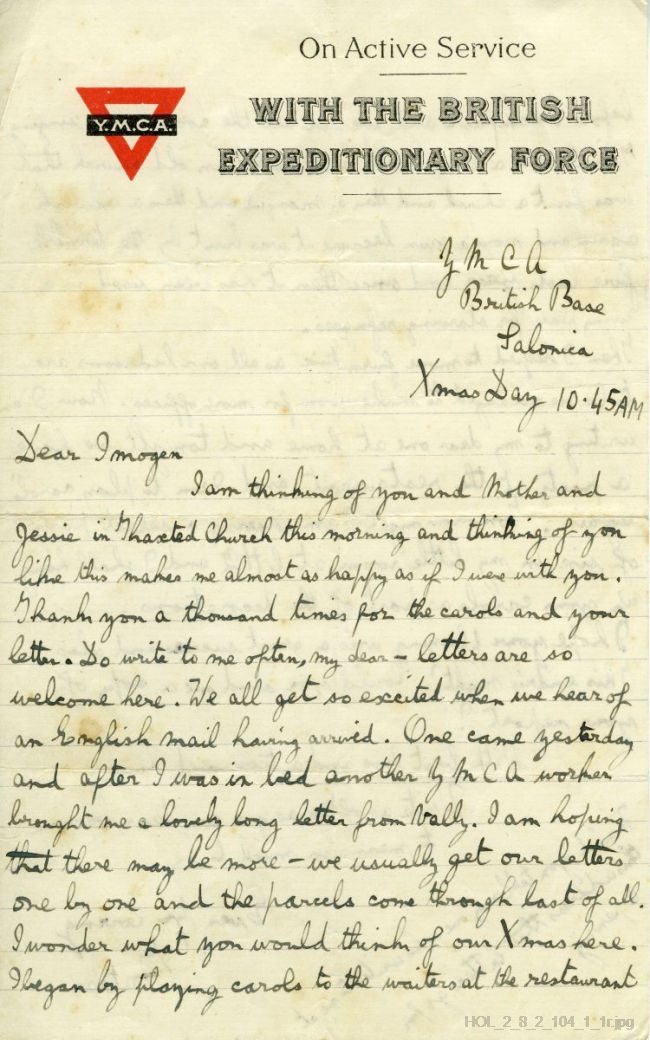 On Active Service
WITH THE BRITISH
EXPEDITIONARY FORCE
Y.M.C.A.
Y M C A
British Base
Salonica
Xmas Day 10.45 AM
Dear Imogen
I am thinking of you and Mother and
Jessie in Thaxted Church this morning and thinking of you
like this makes me almost as happy as if I were with you.
Thank you a thousand times for the carols and your
letter. Do write to me often, my dear – letters are so
welcome here. We all get so excited when we hear of
an English mail having arrived. One came yesterday
and after I was in bed another Y M C A worker
brought me a lovely long letter from Vally. I am hoping
that there may be more – we usually get our letters
one by one and the parcels come through last of all.
I wonder what you would think of our Xmas here.
I began by playing carols to the waiters at the restaurant
HOL_2_8_2_104_1_1r.jpg